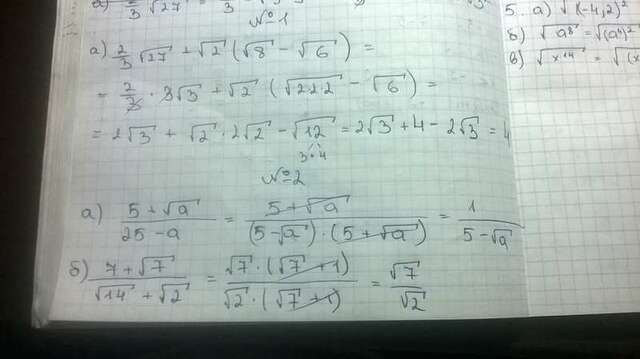 №1
а) 2/3 √27 + √2 (√8 − √6) =
= 2/3 · 3√3 + √2 (√2·2·2 − √6) =
= 2√3 + √2 · 2√2 − √12 = 2√3 + 4 − 2√3 = 4
3·4
№2
а) (5 + √a)/(25 − a) = (5 + √a)/((5 − √a) · (5 + √a)) = 1/(5 − √a)
б) (7 + √7)/(√14 + √2) = (√7 · (√7 + 1))/(√2 · (√7 + 1)) = √7/√2
5. а) √(−4,2)²
б) √a⁸ = √(a⁴)²
в) √x¹⁴ = √(x